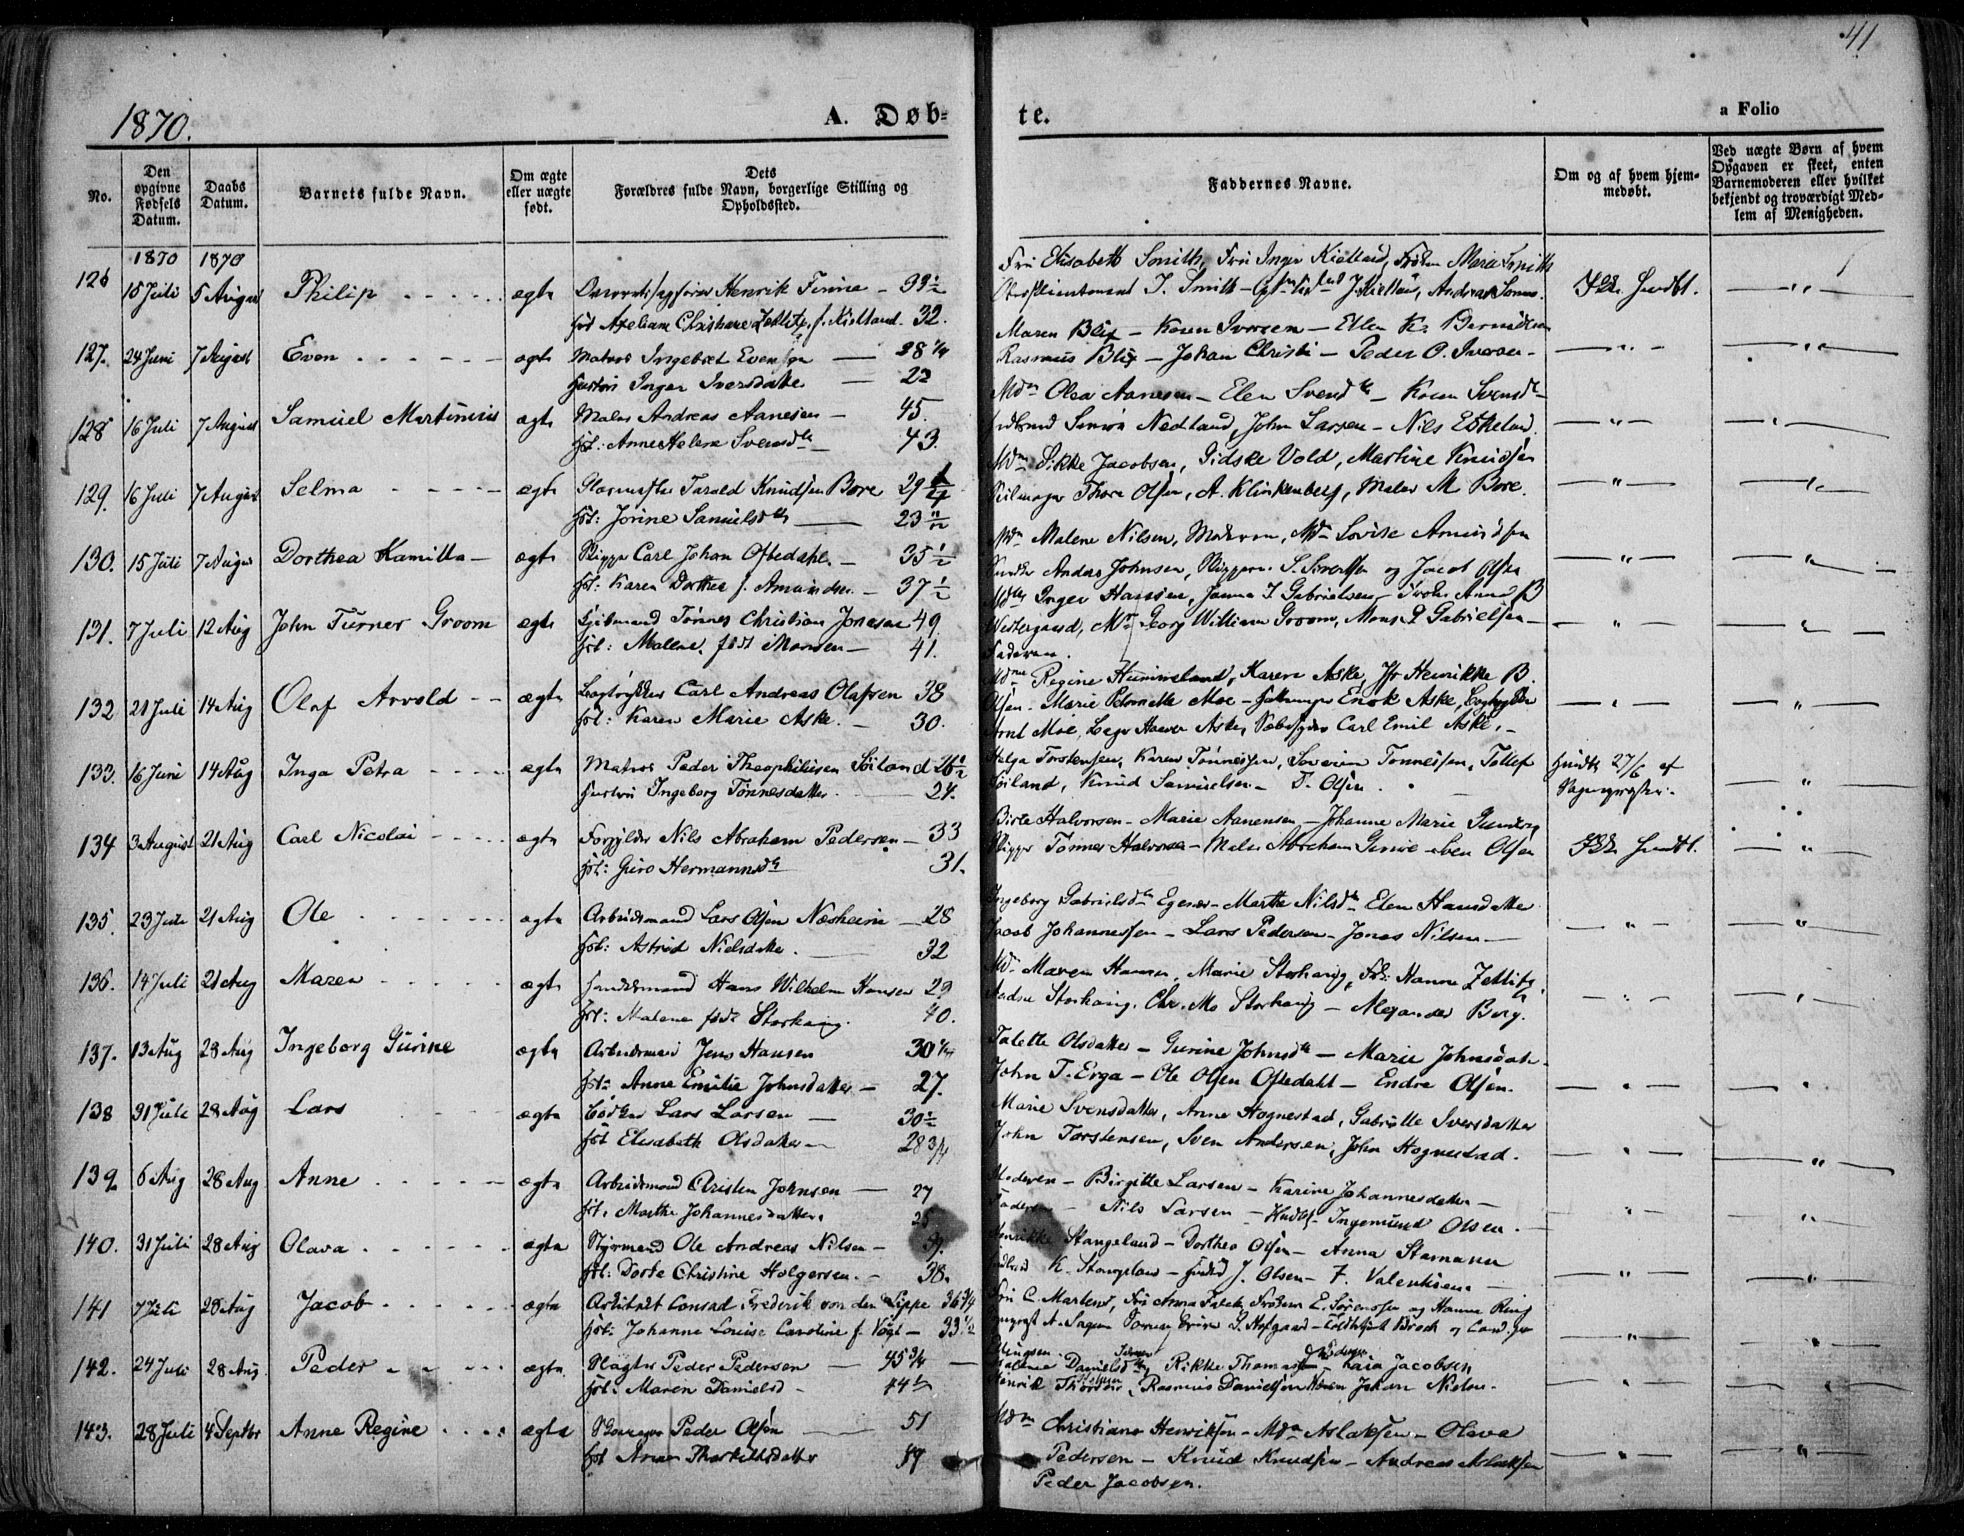 41
1870.
A. Døb-
te.
a Folio
No.
Den opgivne Fødsels Datum.
Daabs Datum.
Barnets fulde Navn.
Om ægte eller uægte født.
Dets Forældres fulde Navn, borgerlige Stilling og Opholdssted.
Faddernes Navne.
Om og af hvem hjemmedøbt.
Ved uægte Børn af hvem Opgaven er skeet, enten Barnemoderen eller hvilket bekjendt og troværdigt Medlem af Menigheden.
1870 1870
126 10 Juli 5 August Philip ægte Henrik Finne 33 1/2
Axeliane Christiane Zetlitz f. Kielland 32.
Fru Elisabeth Smith, Fru Inger Kielland, Frøken Marie Smith
J. Smith
127. 24 Juni 7 August Even ægte Matros Ingebret Evensen 28 1/4
Hustru Inger Iversdatter 22
Maren Blix - Karen Iversen - Ellen K. Berntsen
Rasmus Blix - Johan Christi - Peder O. Iversen -
128 16 Juli 7 August Samuel Martinius ægte Maler Andreas Aanesen 45.
Hst: Anne Helene Svensdtr 43.
Mdm Olea Aanesen - Elen Svendsdtr - Karen Svensdtr
Nedland, John Larsen - Nils Eskeland.
129. 16 Juli 7 August Selma ægte Glarmester Tarald Knudsen Bore 29 1/4
Hst: Jorine Samuelsdtr 23 11/12
Mdm Sikke Jacobsen, Gidske Vold, Martine Knudsen
Seilmager Thore Olsen, A. Klinkenberg, Maler M Bore.
130. 15 Juli 7 August Dorthea Kamilla ægte Skipper Carl Johan Oftedahl. 35 1/2
Hst: Karen Dorthea f. Amundsen 37 1/2
Mdm Malene Nilsen, Moderen, Mdm Lovise Amundsen
Johnsen, Skipperne S. Sivertsen og Jacob Olsen
131. 7 Juli 12 Aug John Turner Groom ægte Tønnes Christian Jonassen 49.
Hst: Malene, født Monsen 41.
Inger Hansen, Janna T Gabrielsen, Frøken Anna B
Westergaard, Mr Georg William Groom, Mons P Gabrielsen -
Faderen.
132 21 Juli 14 Aug Olaf Arvold ægte Bogtrykker Carl Andreas Olafsen 38
Hst: Karen Marie Aske. 30.
Regine Hummeland, Karen Aske, Jfr Henrikke B.
Olsen - Marie Petronelle Moe - Enok Aske,
Arnt Moe, Aske, Carl Emil Aske, -
133. 16 Juni 14 Aug Inga Petra ægte Matros Peder Theophiliusen Soiland 26 1/2
Hustru Ingeborg Tønnesdatter. 24.
Helga Torstensen, Karen Tønnessen, Severin Tonnessen, Tollef
Soiland, Knud Samuelsen - T. Olsen.
27/6 af
134 3 August 21 Aug Carl Nicolai ægte Forgylder Nils Abraham Pedersen 33
Hst: Guro Hermannsdtr 31.
Birte Halvorsen - Marie Aanensen - Johanne Marie
Skipper Tønnes Halvorsen - Maler Abraham - Sven Olsen
135. 23 Juli 21 Aug Ole ægte Arbeidsmand Lars Olsen Næsheim 28
Hst: Astrid Nielsdatter. 32
Ingeborg Gabrielsdtr Egenes - Marthe Nilsdtr Elen Hansdatter
Jacob Johannessen - Lars Pedersen - Jonas Nilsen
136. 14 Juli 21 Aug Maren ægte Handelsmand Hans Wilhelm Hansen 29
Hst: Malene født Storhaug. 40.
Maren Hansen, Marie Storhaug, Frk: Hanna Zetlitz,
Storhaug. Chr. Mo Storhaug - Alexander Berg.
137. 13 Aug 28 Aug Ingeborg Gurine ægte Arbeidsmand Jens Hansen 30 1/4
Hst: Anne Emilie Johnsdatter 27.
Talette Olsdatter - Gurine Johnsdtr - Marie Johnsdatter
John T. Erga - Ole Olsen Oftedahl - Endre Olsen.
138 31 Juli 28 Aug Lars ægte Bødker Lars Larsen 30 1/2
Hst Elisabeth Olsdatter 28 3/4
Marie Svensdatter, Anne Hognestad, Gabrielle Iversdatter
John Torstensen, Sven Andersen, John Hognestad.
139 6 Aug 28 Aug Anne ægte Arbeidsmand Christen Johnsen 27
Hst. Marthe Johannesdatter. 25
Moderen - Birgitte Larsen - Karine Johannesdatter -
Faderen - Nils Larsen - Ingemund Olsen.
140. 31 Juli 28 Aug Olava ægte Styrmand Ole Andreas Nilsen 39.
Hst: Dorte Christine Holgersen. 38.
Henrikke Stangeland - Dorthea Olsen - Anna Stamann
K. Stangeland - J. Olsen - F. Valentinsen
141 7 Juli 28 Aug Jacob ægte Arkitekt Conrad Frederik von der Lippe 36 3/4
Hst: Johanne Louise Caroline f. Vogt 33 1/2
Fru C. Martens, Fru Anna Falck, Frøknerne E. Sørenssen og Hanna Ring
142. 24 Juli 28 Aug. Peder ægte Slagter Peder Pedersen 45 3/4
Hst: Maren Danielsd 44 1/2
Danielsdtr, Rikke Thomassen - Kaia Jacobsen
Henrik Thorsen, Rasmus Danielsen Johan Nielsen.
143. 28 Juli 4 Septbr Anne Regine ægte Skomager Peder Olsen 51
Hst Anne Thorkildsdatter 39
Mdm Christiane Henriksen - Mdm Aslaksen - Olava
Pedersen - Knud Knudsen - Andreas Aslaksen
Peder Jacobsen.